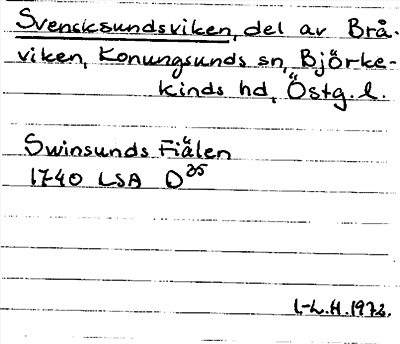 Svensksundsviken, del av Brå-
viken, Konungsunds sn, Björke-
kinds hd, Östg. l.
Swinsunds Fiälen
1740 LSA D 25
I.-L. H. 1972.